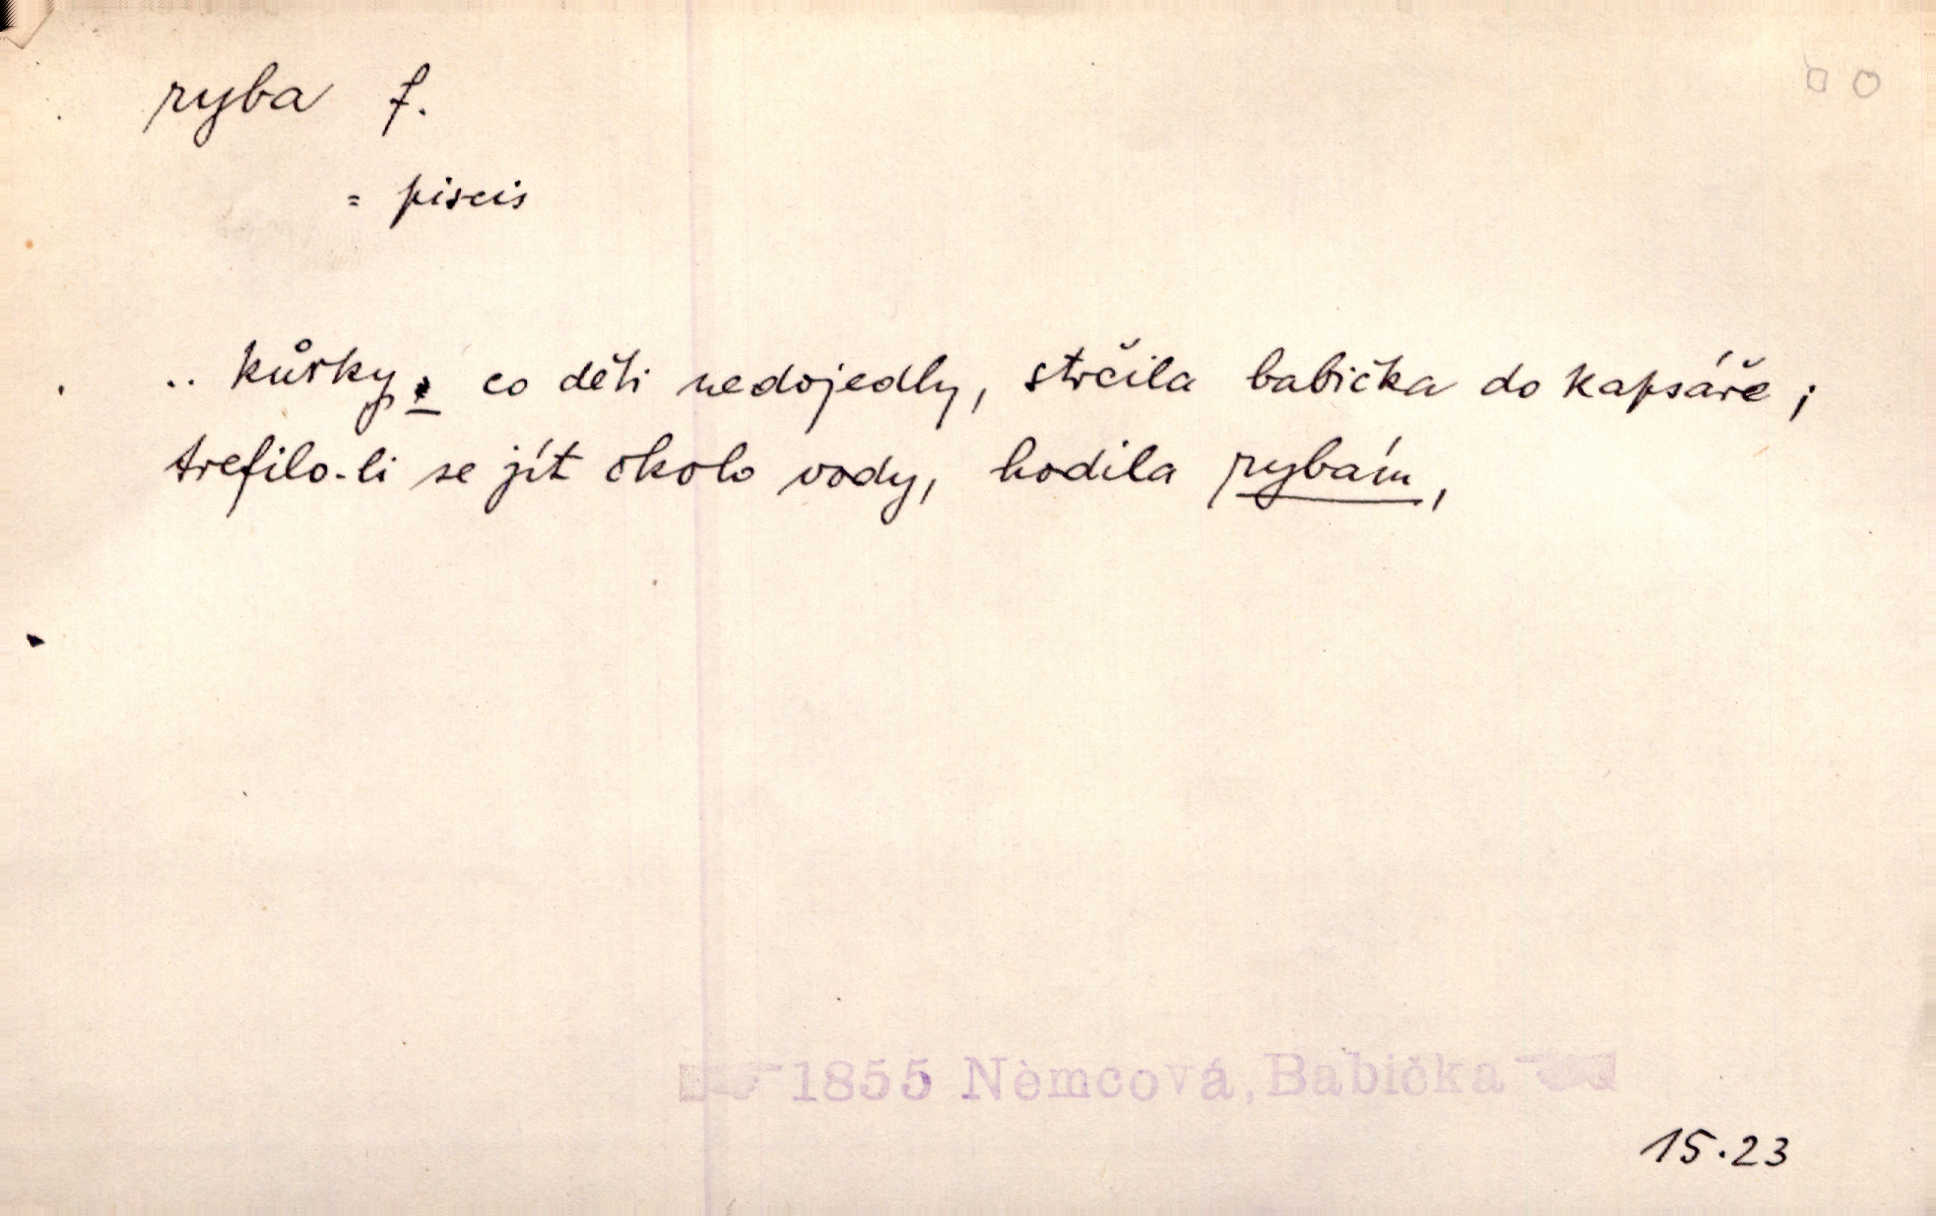 ryba f.
= piscis
.. kůrky, co děti nedojedly, strčila babička do kapsáře;
trefilo-li se jít okolo vody, hodila rybám,
1855 Němcová, Babička
15.23